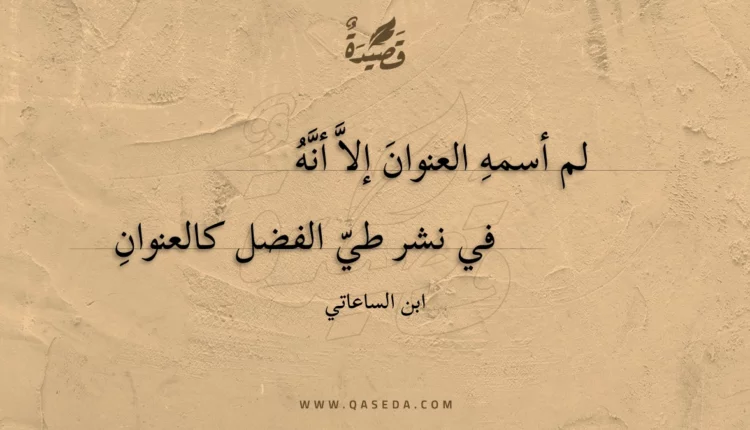 قَصِيدَةٌ
لم أسمهِ العنوانَ إلاَّ أنَّهُ
في نشر طيّ الفضل كالعنوانِ
ابن الساعاتي
WWW.QASEDA.COM